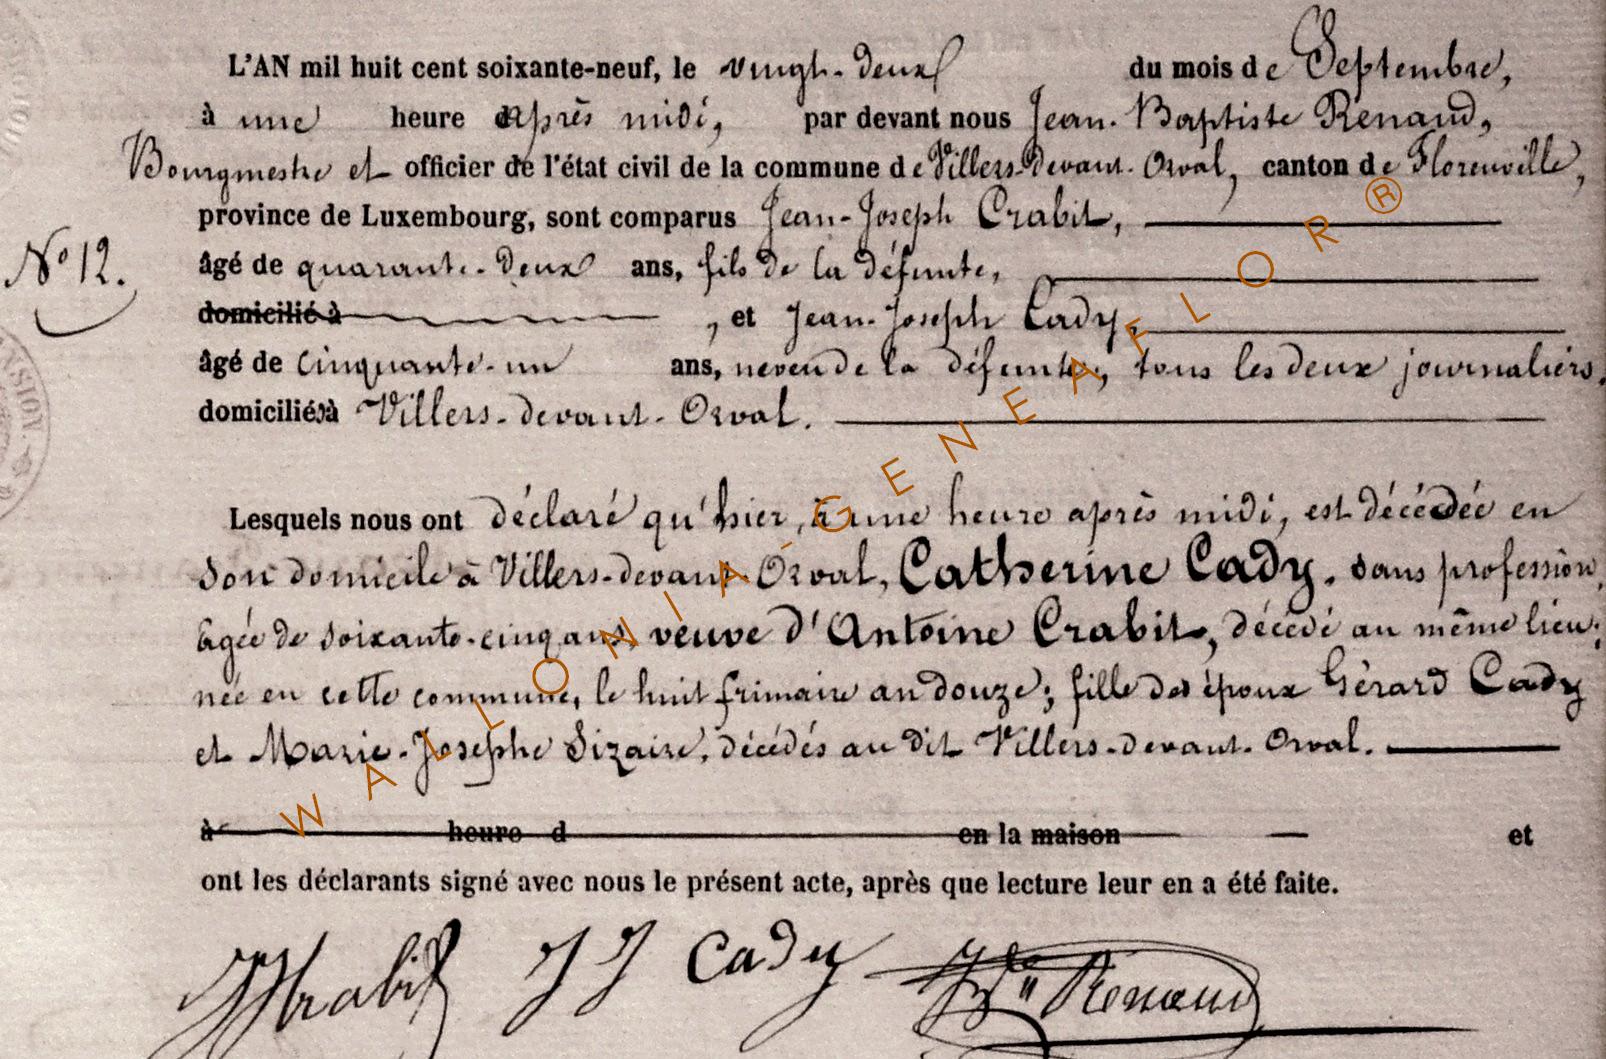 L'AN mil huit cent soixante-neuf, le vingt-deux du mois de Septembre,
à une heure après midi, par devant nous Jean-Baptiste Renaud,
Bourgmestre et officier de l'état civil de la commune de Villers-devant-Orval, canton de Florenville,
province de Luxembourg, sont comparus Jean-Joseph Crabit,
N° 12.
âgé de quarante-deux ans, fils de la défunte,
domicilié à , et Jean-Joseph Cady,
âgé de cinquante-un ans, neveu de la défunte; tous les deux journaliers,
domiciliés à Villers-devant-Orval.
Lesquels nous ont déclaré qu'hier, à une heure après midi, est décédée en
son domicile à Villers-devant-Orval, Catherine Cady, sans profession,
âgée de soixante-cinq ans, veuve d'Antoine Crabit, décédé au même lieu;
née en cette commune, le huit frimaire an douze; fille des époux Gérard Cady
et Marie-Josephe Sizaire, décédés au dit Villers-devant-Orval.
à heure d en la maison et
ont les déclarants signé avec nous le présent acte, après que lecture leur en a été faite.
JJ Crabit JJ Cady Jbte Renaud
WALLONIA-GENEAFLOR®